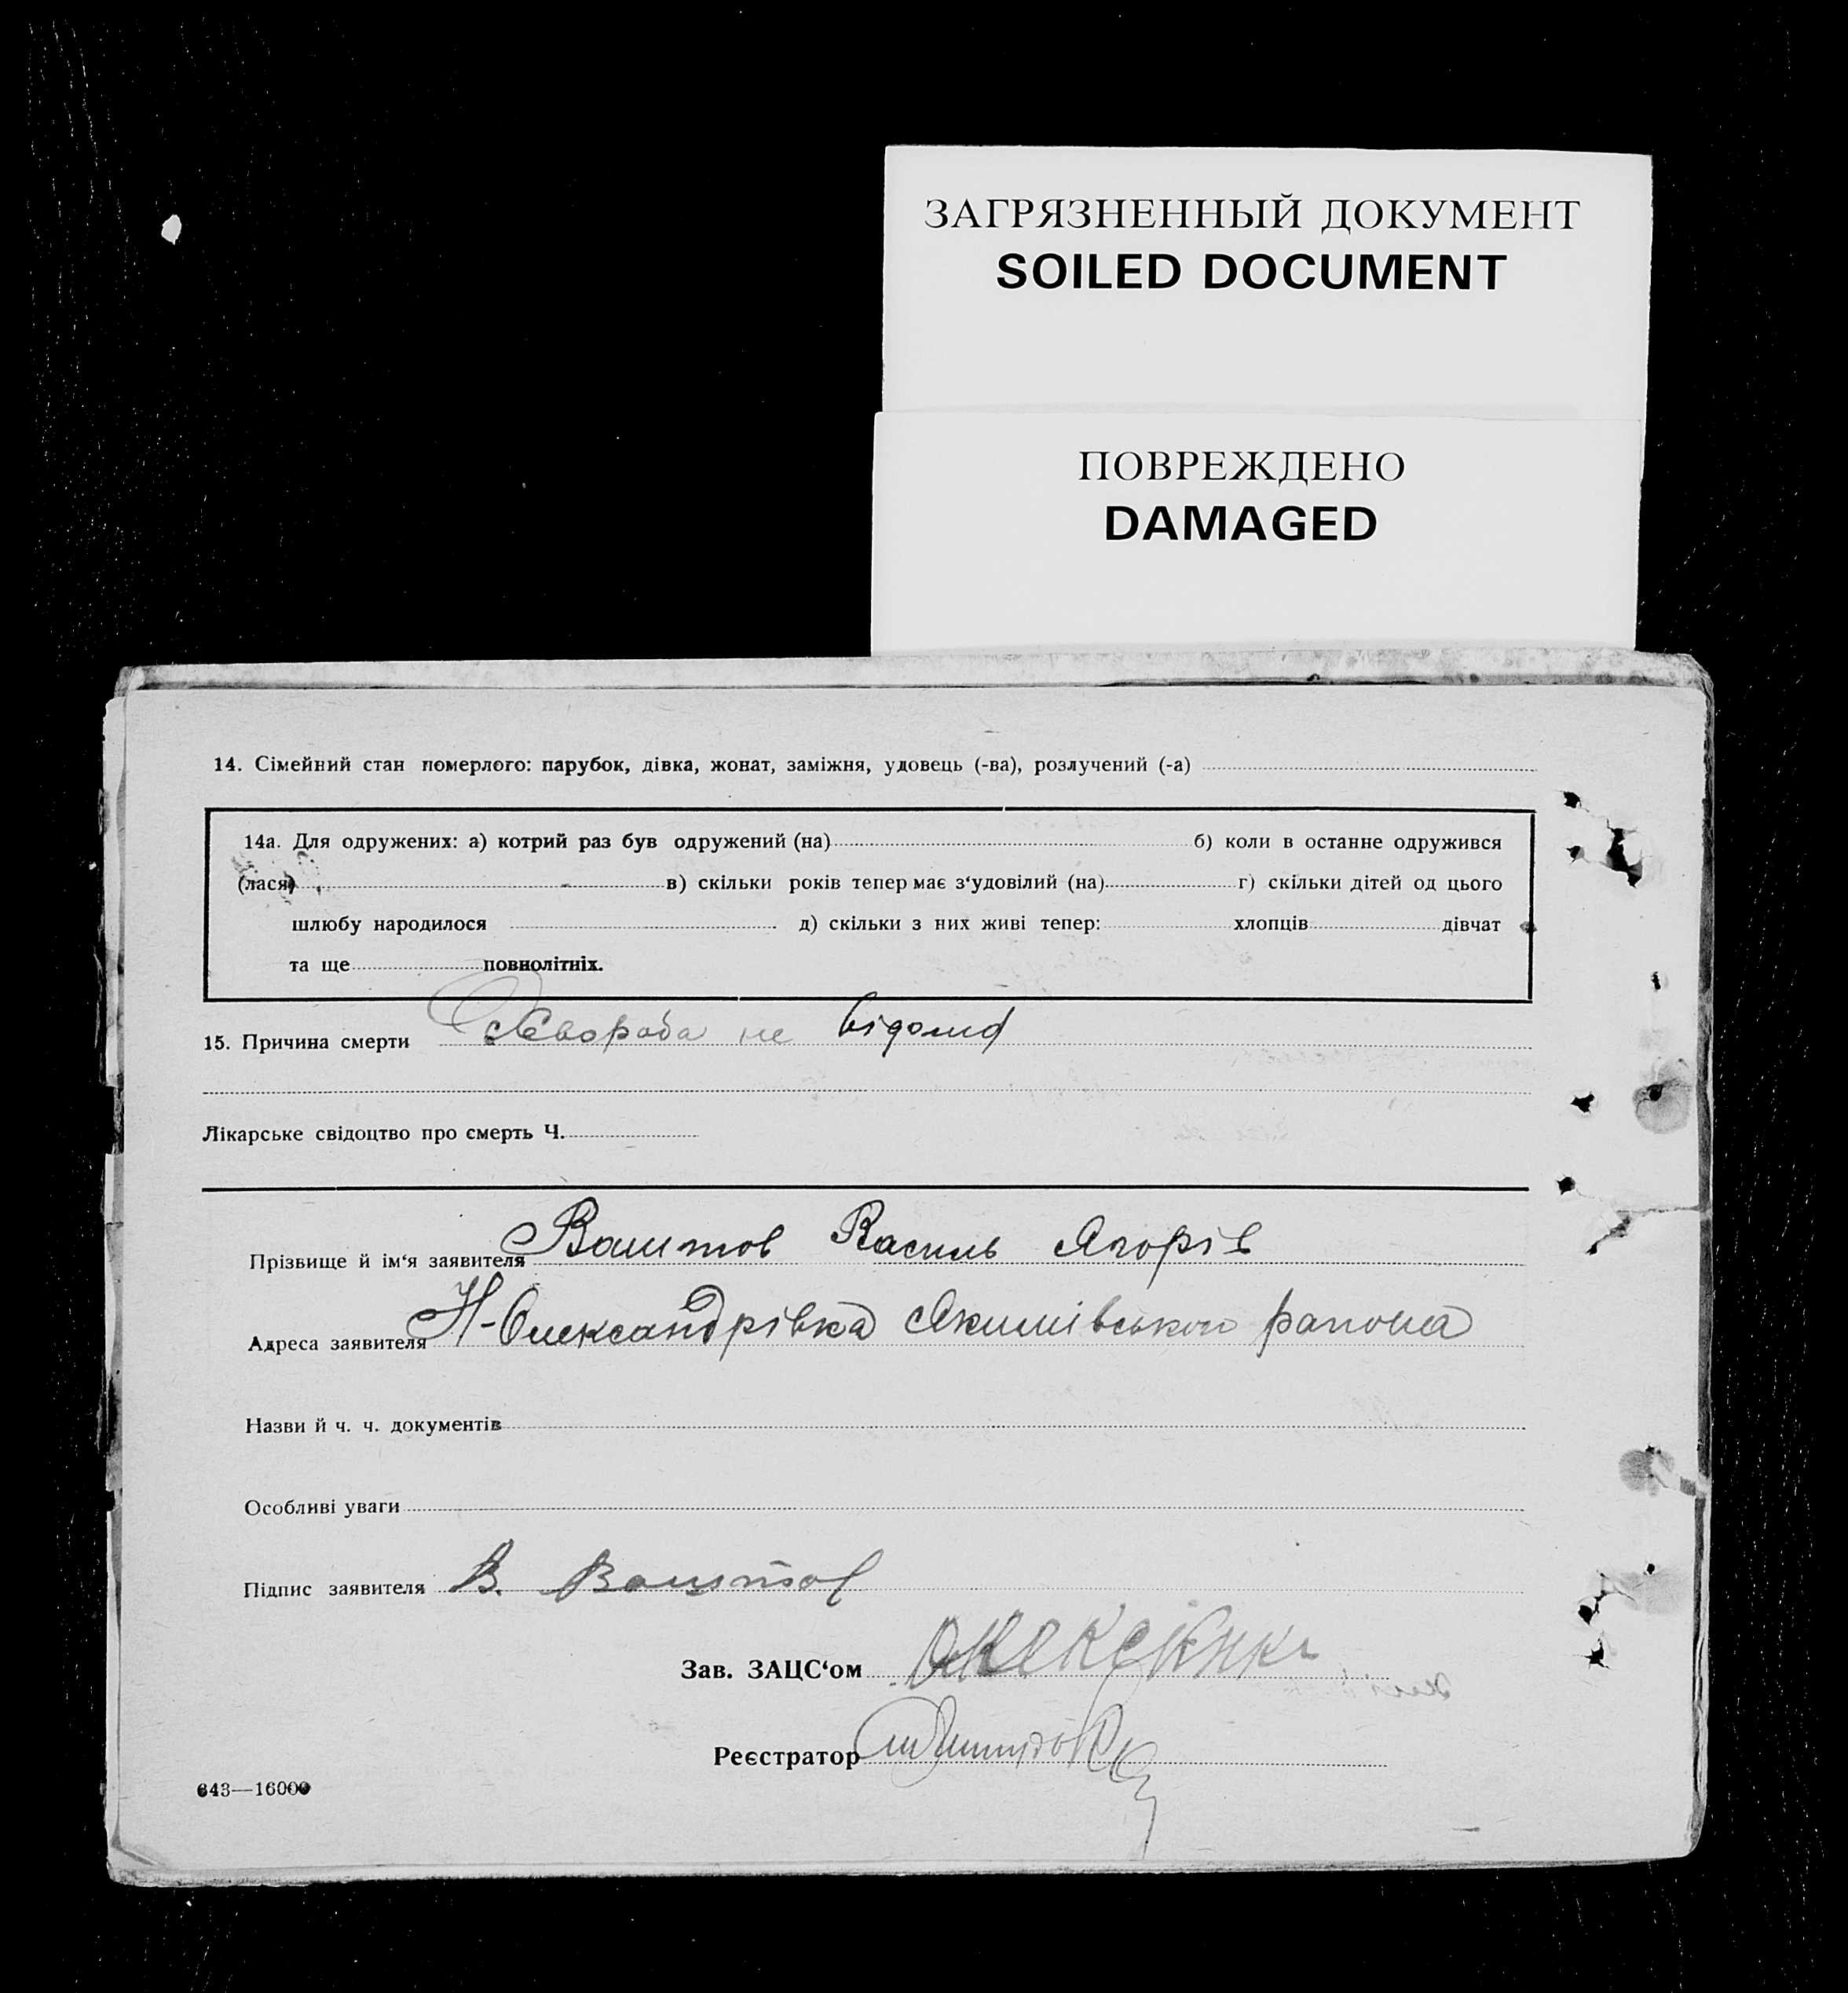 ЗАГРЯЗНЕННЫЙ ДОКУМЕНТ
SOILED DOCUMENT
ПОВРЕЖДЕНО
DAMAGED
14. Сімейний стан померлого: парубок, дівка, жонат, заміжня, удовець (-ва), розлучений (-а)
14а. Для одружених: а) котрий раз був одружений (на) б) коли в останнє одружився
(лася) в) скільки років тепер має з‘удовілий (на) г) скільки дітей од цього
шлюбу народилося д) скільки з них живі тепер: хлопців дівчат
та ще повнолітніх.
15. Причина смерти Хвороба не відома
Лікарське свідоцтво про смерть Ч.
Прізвище й ім‘я заявителя Ваштов Василь Ягорів
Адреса заявителя Н-Олександрівка Якимівського района
Назви й ч. ч. документів
Особливі уваги
Підпис заявителя В. Ваштов
Зав. ЗАЦС‘ом
Реєстратор
643—16000